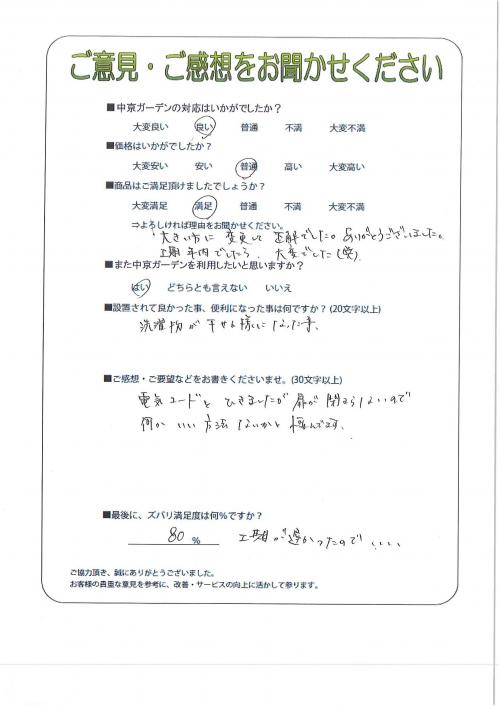 ご意見・ご感想をお聞かせください
■中京ガーデンの対応はいかがでしたか？
大変良い 良い 普通 不満 大変不満
■価格はいかがでしたか？
大変安い 安い 普通 高い 大変高い
■商品はご満足頂けましたでしょうか？
大変満足 満足 普通 不満 大変不満
⇒よろしければ理由をお聞かせください。
大きい方に変更して正解でした。ありがとうございました。
工期 年内でしたら、大変でした(笑)
■また中京ガーデンを利用したいと思いますか？
はい どちらとも言えない いいえ
■設置されて良かった事、便利になった事は何ですか？(20文字以上)
洗濯物が干せる様になった事、
■ご感想・ご要望などをお書きくださいませ。(30文字以上)
電気コードを ひきましたが 扉が閉まらないので
何か いい方法ないかと 悩んでます。
■最後に、ズバリ満足度は何%ですか？
80 % 工期が遅かったので、、、、
ご協力頂き、誠にありがとうございました。
お客様の貴重な意見を参考に、改善・サービスの向上に活かして参ります。